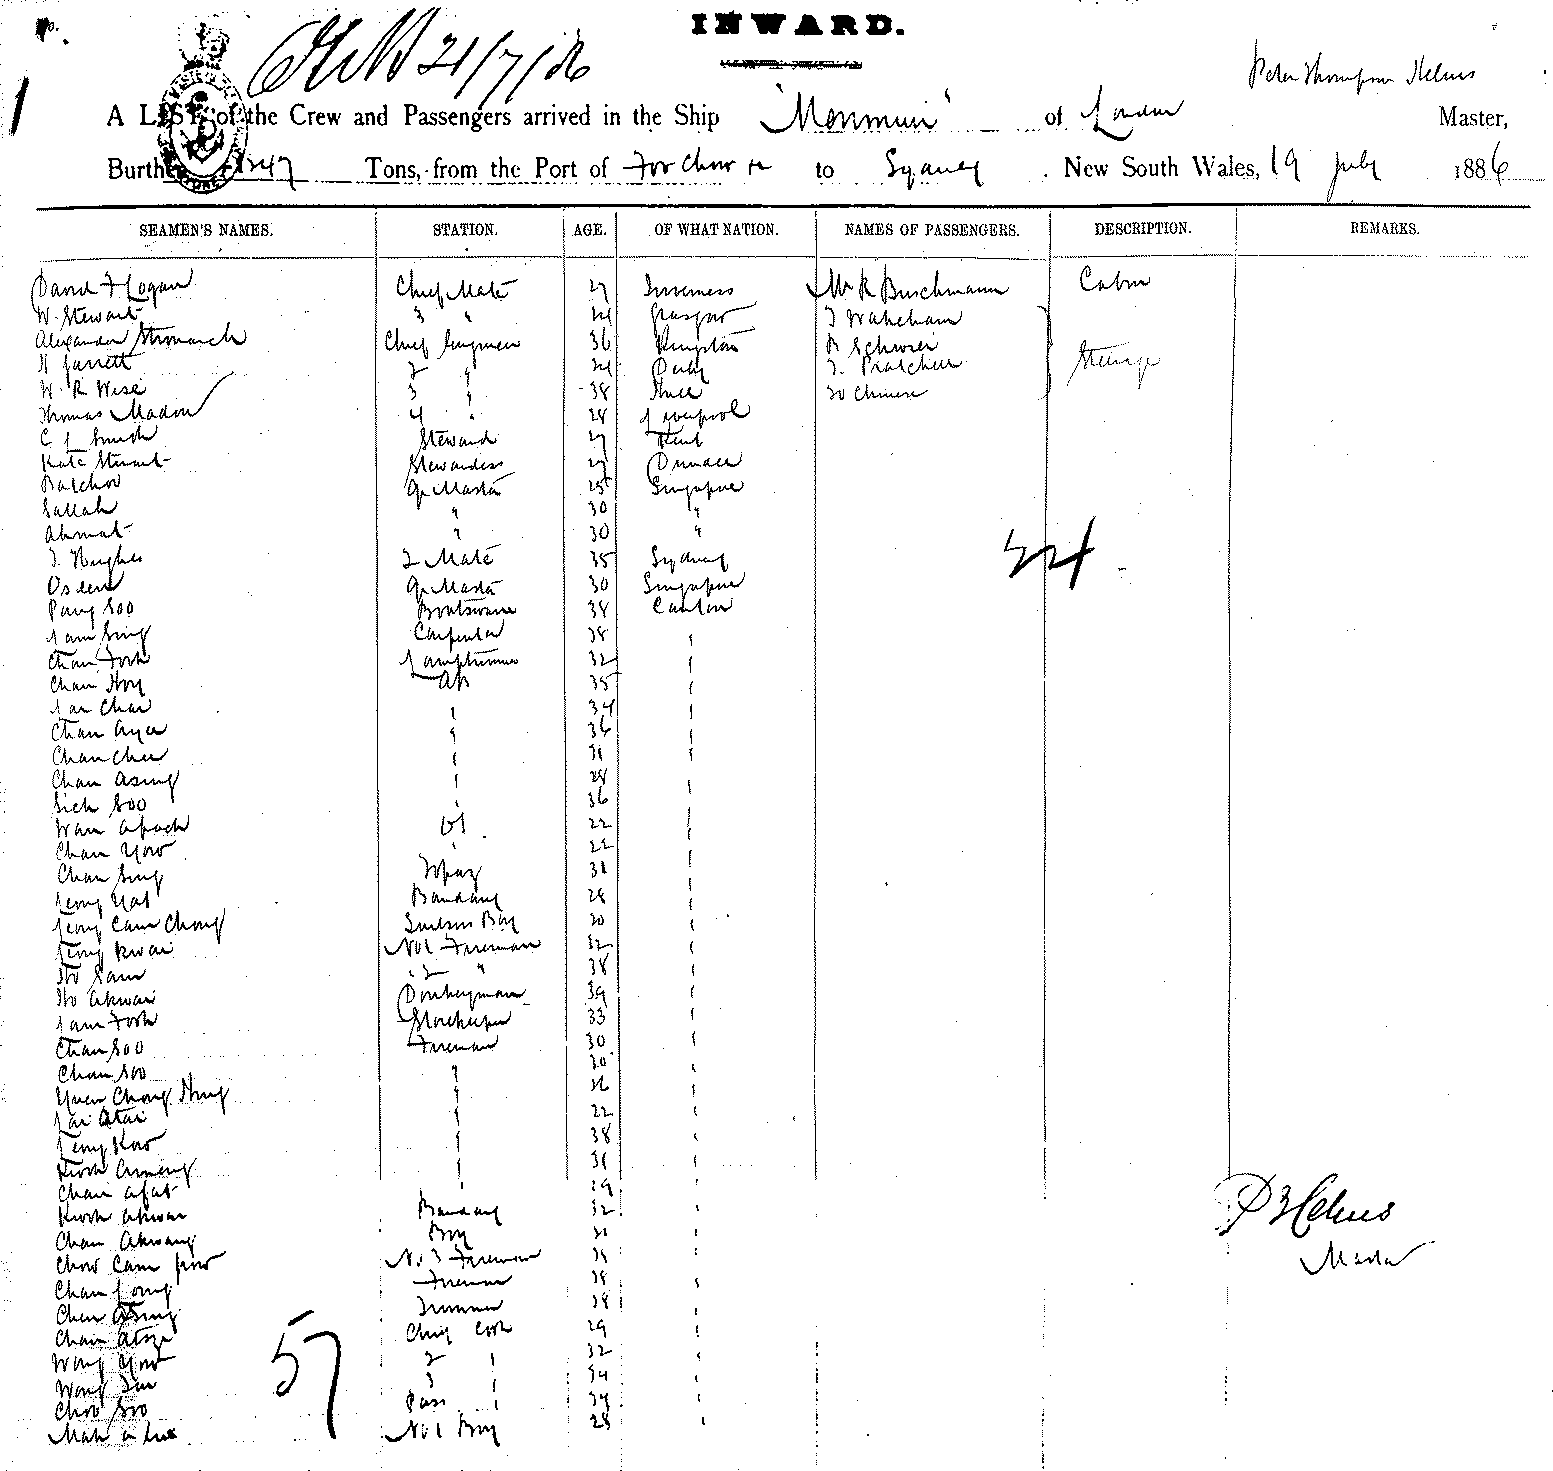 No.
INWARD.
21/7/86
Peter Thompson Helms
A LIST of the Crew and Passengers arrived in the Ship "Monmuir" of London Master,
Burthen 1247 Tons, from the Port of Foo Chow to Sydney New South Wales, 19 July 1886
SEAMEN'S NAMES. STATION. AGE. OF WHAT NATION. NAMES OF PASSENGERS. DESCRIPTION. REMARKS.
David F Logan Chief Mate 27 Inverness Mr R Buschmann Cabin
W. Stewart 3 " 24 Glasgow J Wakeham
Alexander Chief Engineer 36 Kingston
H Garrett 2 " 24 Derby Steerage
W. R Wise 3 " 38 Hull 20 Chinese
Thomas Madon 4 " 28 Liverpool
C J Smith Steward 27 Kent
Kate Stewart Stewardess 27 Dundee
Balchoo Qr Master 25 Singapore
Sallah " 30 "
Ahmat " 30 "
J. Hughes 2 Mate 35 Sydney
Osden Qr Master 30 Singapore
24
Pang Soo Boatswain 38 Canton
Lam Sing Carpenter 38 "
Chan Fook Lamptrimmer 32 "
Chan Hoy AB 35 "
Lan Chai " 34 "
Chan Aya " 36 "
Chan Chee " 31 "
Chan Asing " 28 "
Sick Soo " 36 "
Wan Apack OS 22 "
Chan Yow " 22 "
Chan Sing 31 "
Leong Yat Bandany 28 "
Leong Cam Chong Sailors Boy 20 "
Leong Kwai No 1 Fireman 32 "
Ho Sam " 2 " 38 "
Ho Akwai Donkeyman 39 "
Lam Fook Storekeeper 33 "
Chan Soo Fireman 30 "
Chan Soo " 30 "
Yuen Chong Hing " 26 "
Lai Atai " 22 "
Leong Kow " 38 "
Kwok Ameng " 31 "
Chan Afat " 29 "
Kwok Akwai Bandany 32 "
P T Helms
Chan Akwang Boy 21 "
Master
Chow Cam Pow No 3 Fireman 31 "
Chan Long Fireman 28 "
Chan Asing Trimmer 28 "
57
Chan Chief Cook 29 "
Wong Yow 2 " 32 "
Wong Sui 3 " 34 "
Choo Soo Pass " 34 "
Mak a Lui No 1 Boy 28 "